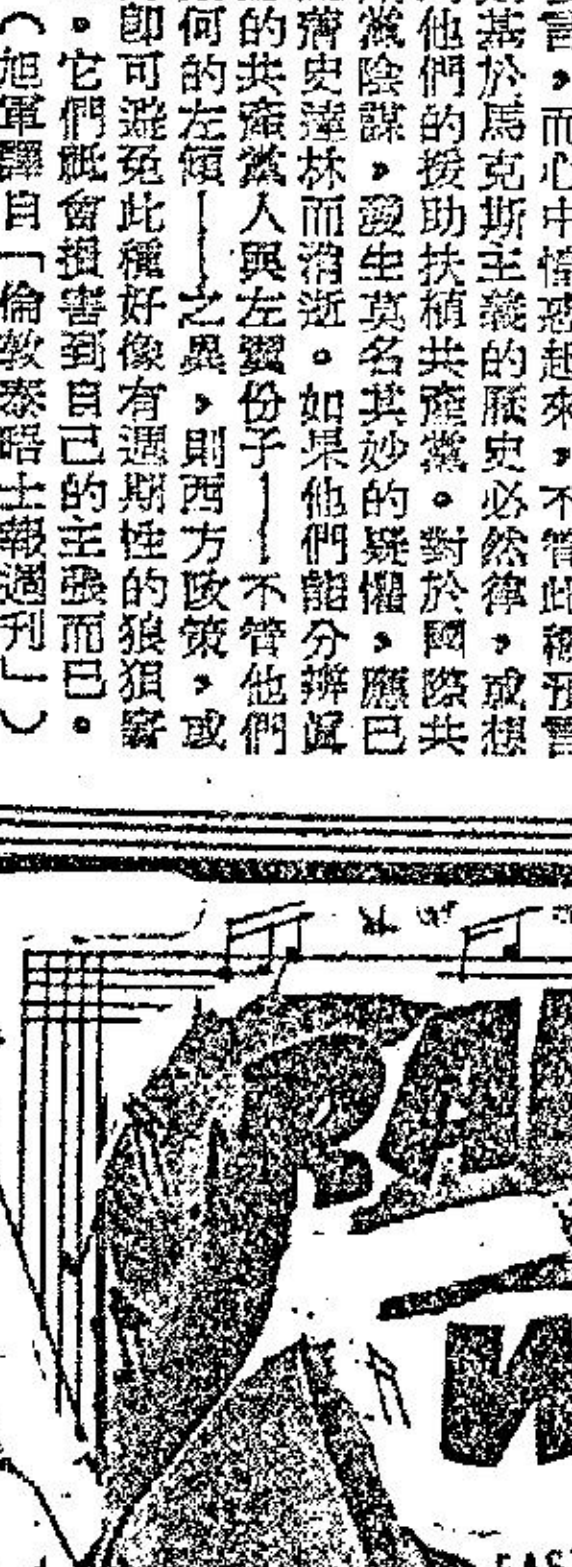 言，而心中惶惑起來，不管此種預言
基於馬克斯主義的歷史必然律，或想
他們的援助扶植共產黨。對於國際共
黨陰謀，發生莫名其妙的疑懼，應已
史達林而消逝。如果他們能分辨真
的共產黨人與左翼份子——不管他們
何的左傾——之異，則西方政策，或
即可避免此種好像有週期性的狼狽窘
。它們祇會損害到自己的主張而已。
（旭軍譯自「倫敦泰晤士報週刊」）